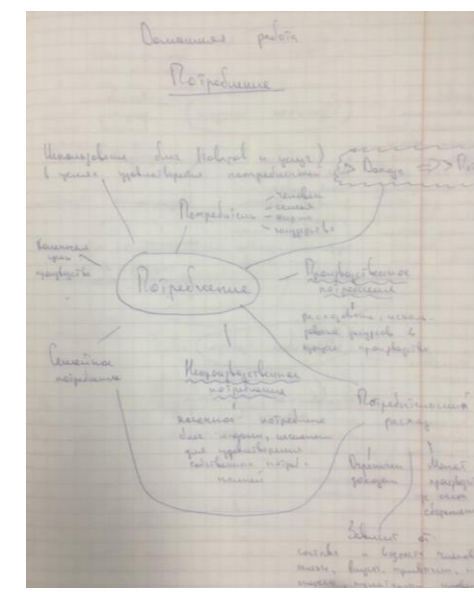 Домашняя работа
Потребление
Использование благ (товаров и услуг)
в целях удовлетворения потребностей
> Доход => > Пот
Потребитель
- человек
- семья
- фирма
- государство
Конечная
цель
производства
Потребление
Производственное
потребление
расходование, исполь-
зование ресурсов в
процессе производства
Семейное
потребление
Непроизводственное
потребление
конечное потребление
благ людьми,
для удовлетворения
собственных потреб-
ностей
Потребительский
расход
Ограничен
доходом
Может
производ
сбережен
Зависит от:
состава и возраста членов